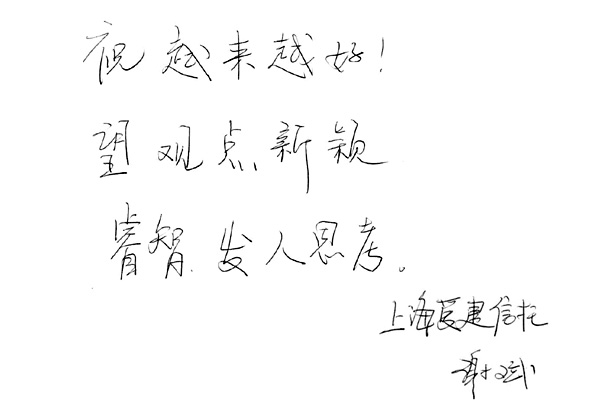 祝越来越好!
望观点新颖
睿智.发人思考。
上海爱建信托